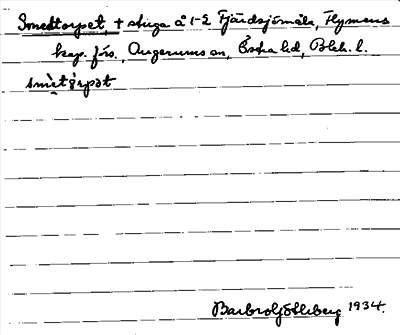 Smedtorpet, + stuga å 1-2 Fjärdsjömåla, Flymens
kap. förs., Augerums sn, Östra hd, Blek. l.
smètǫrpət
Barbro Götleberg 1934.